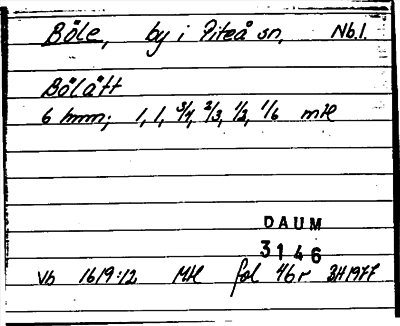 Böle, by i Piteå sn, Nb.l.
Bölått
6 hmn; 1, 1, 3/4, 2/3, 1/2, 1/6 mtl
DAUM
3146
Vb 1619:12 Ml fol 46r BH1977